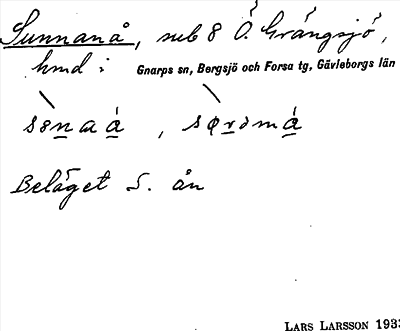 Sunnanå, sub 8 Ö. Grängsjö,
hmd i Gnarps sn, Bergsjö och Forsa tg, Gävleborgs län
Beläget S. ån
LARS LARSSON 1933